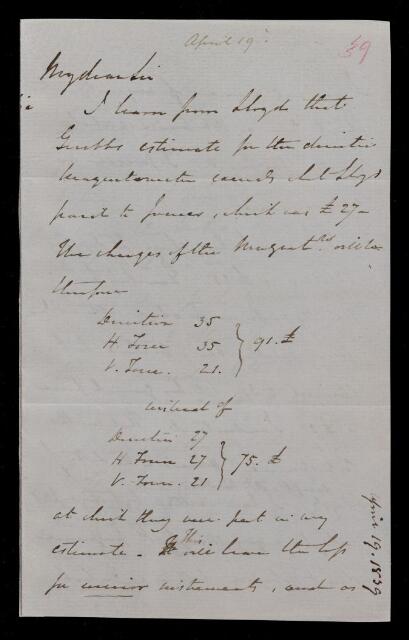 April 19.
59
My dear Sir
I learn from Lloyd that
Grubb's estimate for the direction
Magnetometer exceeds what Lloyd
paid to Jones, which was £27 –
The charges of the Magnet.rs will be
therefore
Direction 35
H Force 35 } 91. £
V. Force. 21.
instead of
Direction 27
H Force 27 } 75. £
V. Force. 21
at which they were put in my
estimate. This will leave the less
for minor instruments, and as
April 19. 1839